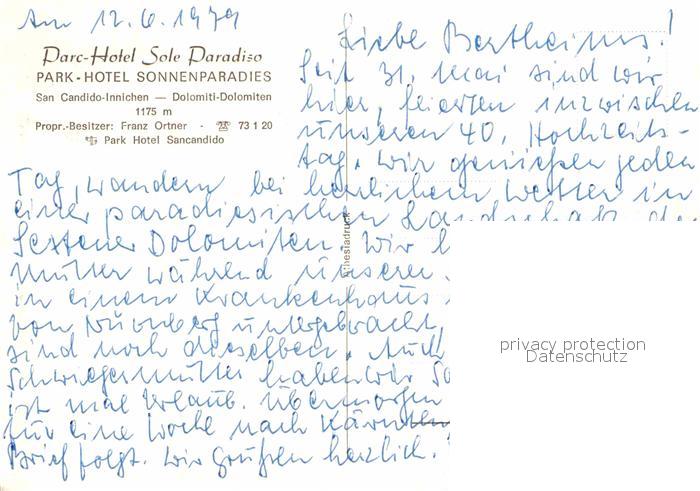 Am 12.6.1979
Parc-Hotel Sole Paradiso
PARK-HOTEL SONNENPARADIES
San Candido-Innichen — Dolomiti-Dolomiten
1175 m
Propr.-Besitzer: Franz Ortner - ☏ 73 1 20
Park Hotel Sancandido
Liebe Bertheims!
Seit 31. Mai sind wir
hier, feierten inzwischen
unseren 40. Hochzeits-
tag. Wir genießen jeden
Tag, wandern bei herrlichem Wetter in
einer paradiesischen Landschaft der
Sextener Dolomiten. Wir
Mutter während unserer
in einem Krankenhaus
von Nürnberg untergebracht,
sind noch dieselben. Auch
Schwiegermutter haben wir
ist mal Urlaub. Übermorgen
für eine Woche nach Kärnten
Brief folgt. Wir grüßen herzlich.
privacy protection
Datenschutz